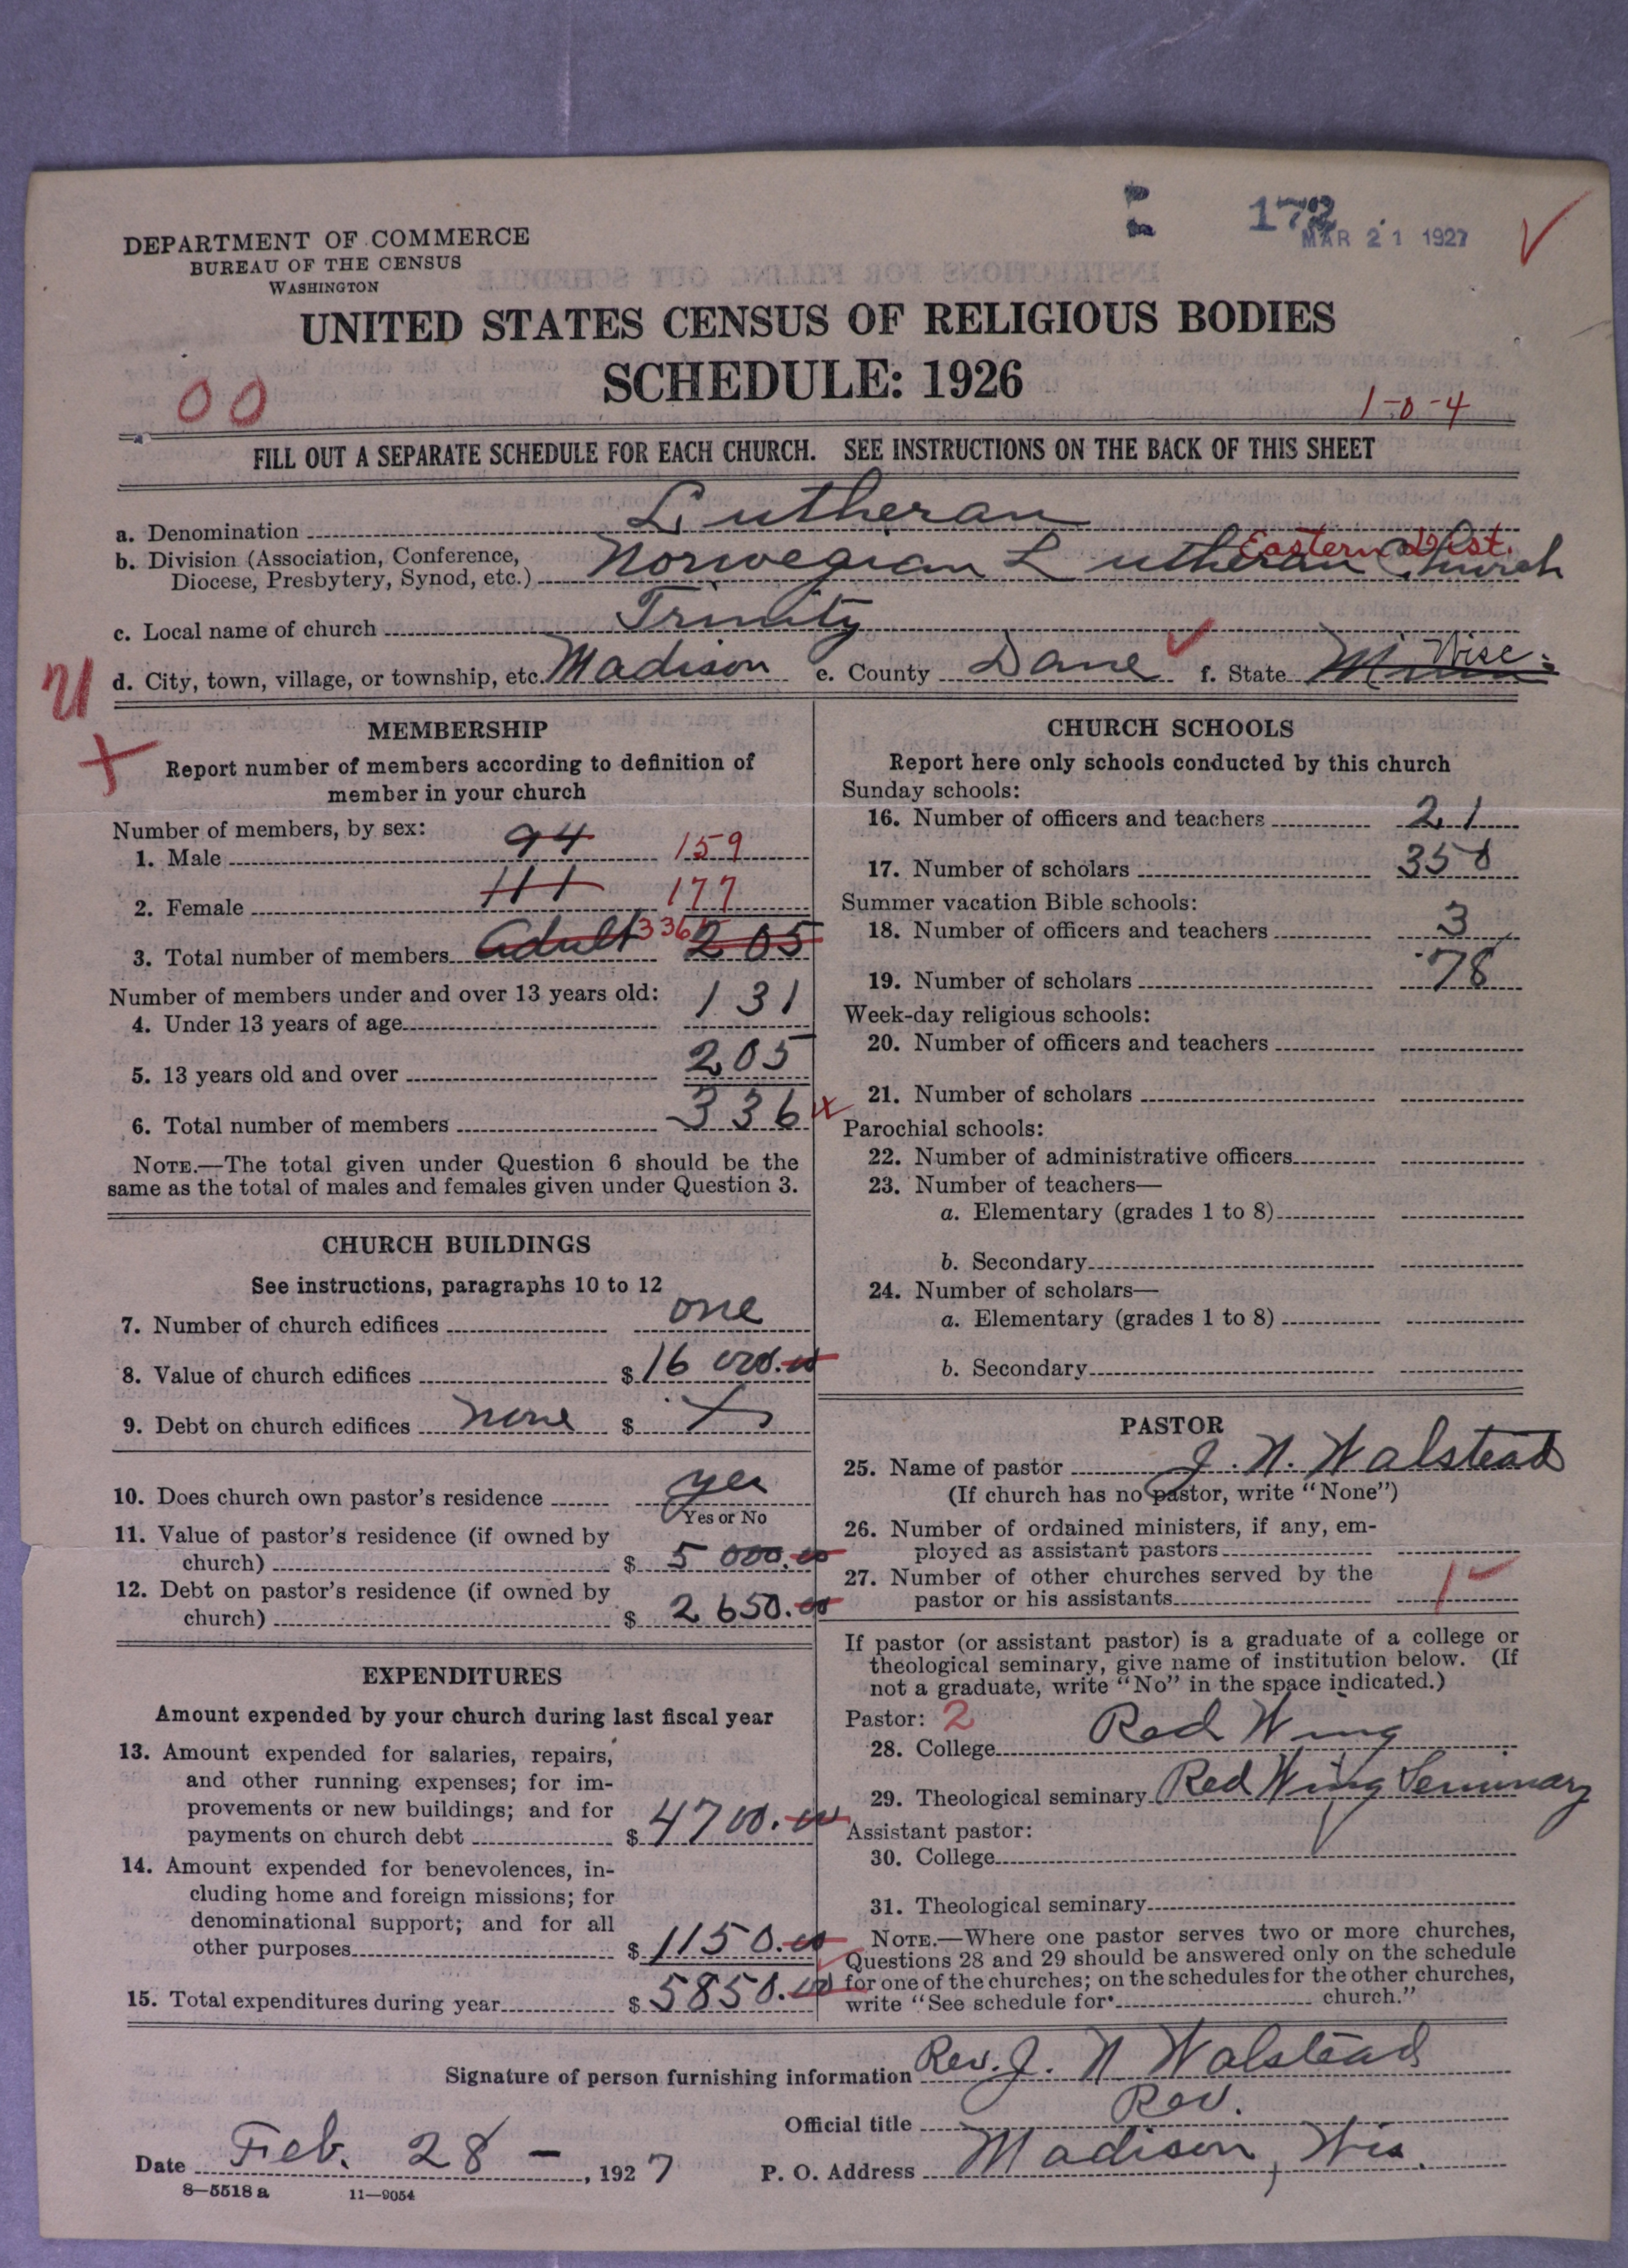 172
MAR 21 1927
DEPARTMENT OF COMMERCE
BUREAU OF THE CENSUS
WASHINGTON
UNITED STATES CENSUS OF RELIGIOUS BODIES
SCHEDULE: 1926
00
1-0-4
FILL OUT A SEPARATE SCHEDULE FOR EACH CHURCH. SEE INSTRUCTIONS ON THE BACK OF THIS SHEET
a. Denomination Lutheran
Eastern Dist.
b. Division (Association, Conference,
Diocese, Presbytery, Synod, etc.) Norwegian Lutheran Church
c. Local name of church Trinity
d. City, town, village, or township, etc. Madison e. County Dane f. State Wisc.
MEMBERSHIP
Report number of members according to definition of
member in your church
Number of members, by sex:
1. Male 94 159
2. Female 111 177
3. Total number of members Adult 336 205
Number of members under and over 13 years old:
4. Under 13 years of age 131
5. 13 years old and over 205
6. Total number of members 336
NOTE.—The total given under Question 6 should be the
same as the total of males and females given under Question 3.
CHURCH BUILDINGS
See instructions, paragraphs 10 to 12
7. Number of church edifices one
8. Value of church edifices $16 000.00
9. Debt on church edifices none $
10. Does church own pastor's residence yes
Yes or No
11. Value of pastor's residence (if owned by
church) $ 5 000.00
12. Debt on pastor's residence (if owned by
church) $ 2 650.00
EXPENDITURES
Amount expended by your church during last fiscal year
13. Amount expended for salaries, repairs,
and other running expenses; for im-
provements or new buildings; and for
payments on church debt $ 4700.00
14. Amount expended for benevolences, in-
cluding home and foreign missions; for
denominational support; and for all
other purposes $ 1150.00
15. Total expenditures during year $ 5850.00
CHURCH SCHOOLS
Report here only schools conducted by this church
Sunday schools:
16. Number of officers and teachers 21
17. Number of scholars 350
Summer vacation Bible schools:
18. Number of officers and teachers 3
19. Number of scholars 78
Week-day religious schools:
20. Number of officers and teachers
21. Number of scholars
Parochial schools:
22. Number of administrative officers
23. Number of teachers—
a. Elementary (grades 1 to 8)
b. Secondary
24. Number of scholars—
a. Elementary (grades 1 to 8)
b. Secondary
PASTOR
25. Name of pastor J. N. Walstead
(If church has no pastor, write "None")
26. Number of ordained ministers, if any, em-
ployed as assistant pastors
27. Number of other churches served by the
pastor or his assistants 1
If pastor (or assistant pastor) is a graduate of a college or
theological seminary, give name of institution below. (If
not a graduate, write "No" in the space indicated.)
Pastor: 2
28. College Red Wing
29. Theological seminary Red Wing Seminary
Assistant pastor:
30. College
31. Theological seminary
NOTE.—Where one pastor serves two or more churches,
Questions 28 and 29 should be answered only on the schedule
for one of the churches; on the schedules for the other churches,
write "See schedule for church."
Signature of person furnishing information Rev. J. N Walstead
Official title Rev.
Date Feb. 28 - , 1927 P. O. Address Madison, Wis.
8—5518 a 11—9054